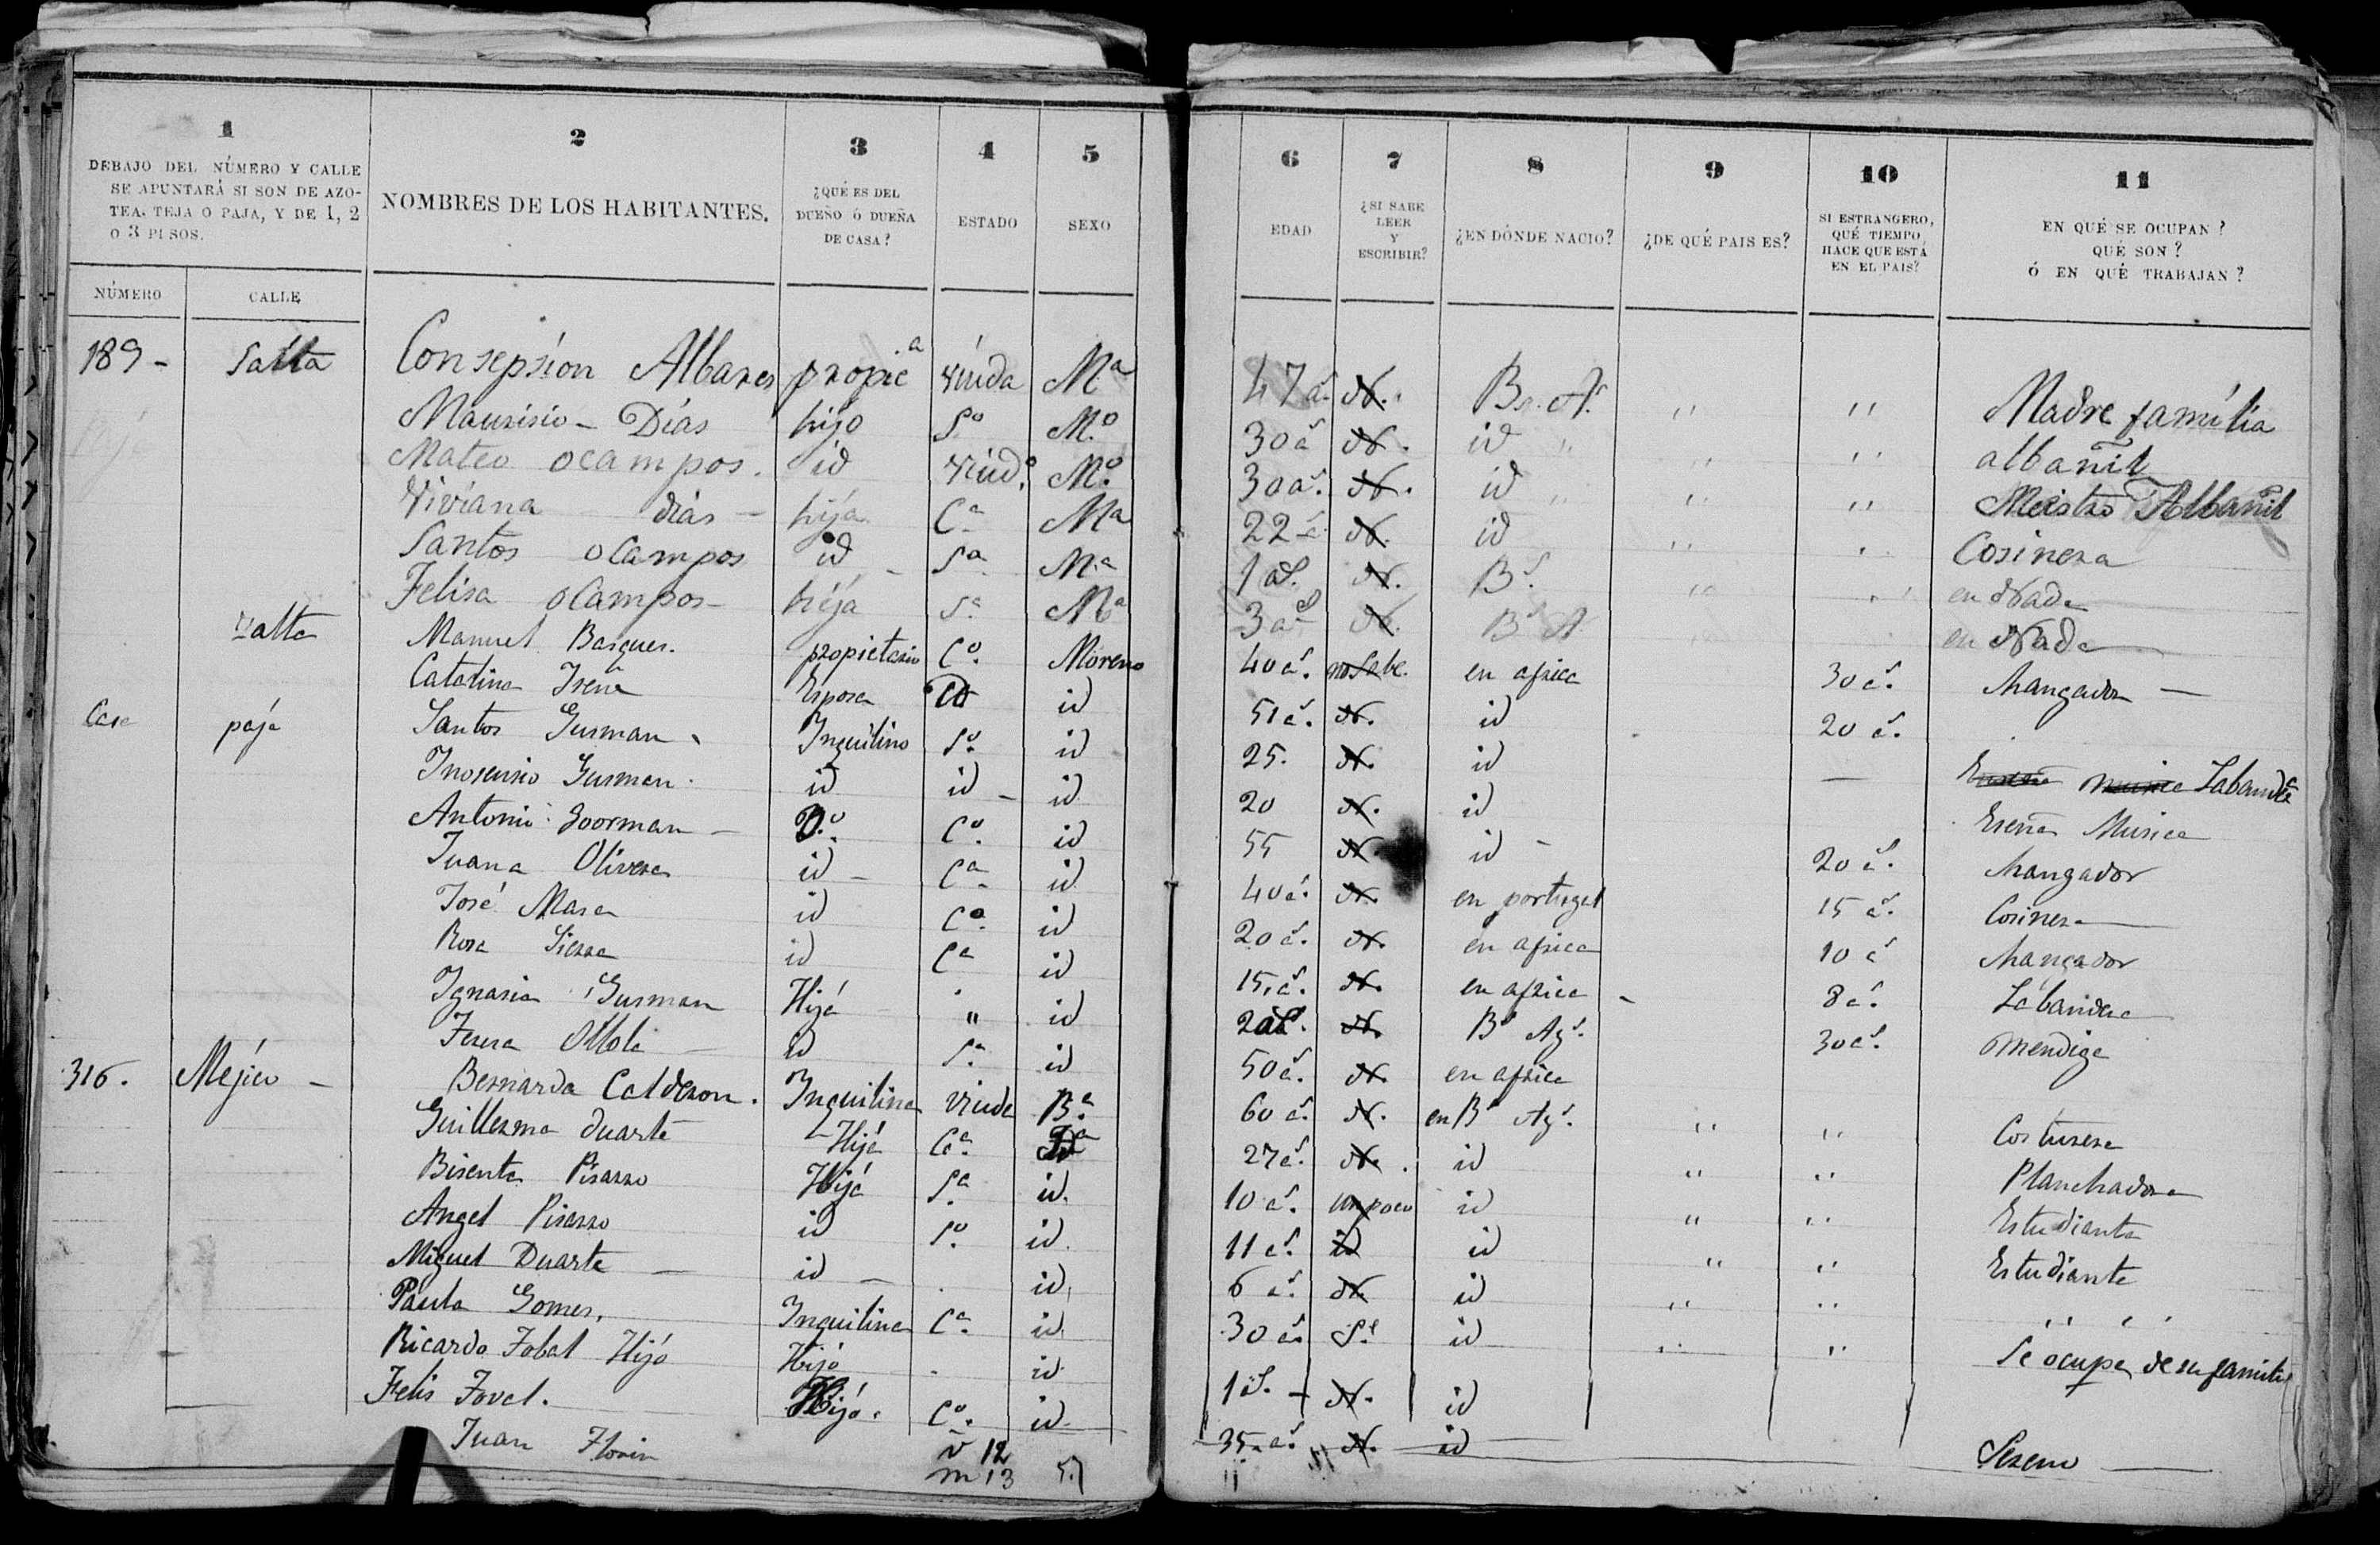 1
DEBAJO DEL NÚMERO Y CALLE
SE APUNTARÁ SI SON DE AZO-
TEA, TEJA O PAJA, Y DE 1, 2
O 3 PISOS.
NÚMERO CALLE
2
NOMBRES DE LOS HABITANTES.
3
¿QUÉ ES DEL
DUEÑO Ó DUEÑA
DE CASA?
4
ESTADO
5
SEXO
6
EDAD
7
¿SI SABE
LEER
Y
ESCRIBIR?
8
¿EN DÓNDE NACIO?
9
¿DE QUÉ PAIS ES?
10
SI ESTRANGERO,
QUÉ TIEMPO
HACE QUE ESTÁ
EN EL PAIS?
11
EN QUÉ SE OCUPAN?
QUÉ SON?
Ó EN QUÉ TRABAJAN?
189 - Salta Consepsíon Albares propieª viuda Mª 47 aˢ. N. Bˢ. Aˢ. " " Madre família
Maurisio - Días hijo Sº Mº 30 aˢ N. id " " " albañil
Mateo Ocampos. id viudº. Mº 30 aˢ. N. id " " " Meistro Albañil
Viviana días - hija Cª Mª 22 aˢ N. id " " Cosinera
Santos Ocampos id - Sª Mª 1 aˢ. N. Bˢ. " " en Nada
Felisa Ocampos - hija Sª Mª 3 aˢ N. Bˢ A en Nada
Salta Manuel Basques. propietario Cº. Moreno 40 aˢ. no sabe. en africa 30 aˢ. Changador -
Catalina Esposa id 51 aˢ. N. id 20 aˢ.
Casa paja Santos Gusman Inquilino Sº. id 25. N. id - Labandera
Inosensio Gusman. id id - id 20 N. id Eseña Musica
Antonio Goorman - Dº. Cº. id 55 N. id - 20 aˢ. Changador
Juana Olivera id - Cª. id 40 aˢ. N. en portugal 15 aˢ. Cosinera
José Masa id Cº. id 20 aˢ. N. en africa 10 aˢ Changador
Rosa Sierra id Cª id 15 aˢ. N. en africa - 8 aˢ. Labandera
Ignasia Gusman Hija " id 2 aˢ. N. Bˢ Ayˢ. 30 aˢ. Mendiga
id Sª. id 50 aˢ. N. en africa
316. Méjico - Bernarda Calderon. Inquilina viuda Bª. 60 aˢ. N. en Bˢ Ayˢ. " " Costurera
Guillerma Duarte Hija Cª. 27 aˢ. N. id " " Planchadora
Bisenta Pisarro Hija Sª. id. 10 aˢ. un poco id " " Estudianta
Angel Pisarro id Sº. id. 11 aˢ. id id " " Estudiante
Miguel Duarte - id - id. 6 aˢ. N. id " " " "
Paula Gomes. Inquilina Cª. id. 30 aˢ. Sí id " " Se ocupa de su familia
Ricardo Hijo Hijo id. 1 aˢ. - N. id
Felis Hijo. Cº. id. 35 aˢ. N. id Sereno -
Juan
v 12
m 13